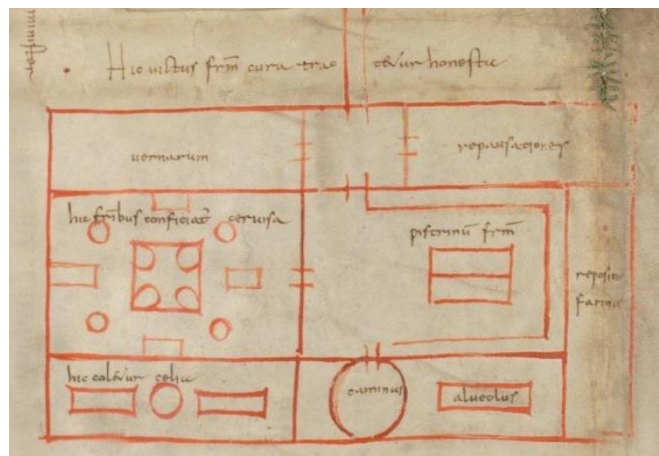 Hic uictus frm̄ cura trac tetur honeste
uernarum
repausationes
hic fr̄ibus conficiat̄ ceruisa
pistrinū frm̄
repositio
farinæ
hic coletur celia
caminus
alueolus